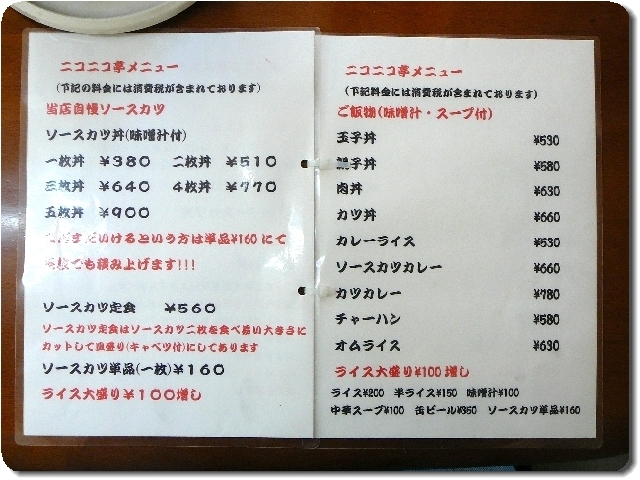 ニコニコ亭メニュー
(下記の料金には消費税が含まれております)
当店自慢ソースカツ
ソースカツ丼(味噌汁付)
一枚丼 ¥380 二枚丼 ¥510
三枚丼 ¥640 4枚丼 ¥770
五枚丼 ¥900
まだいけるという方は単品¥160にて
枚でも積み上げます!!!
ソースカツ定食 ¥560
ソースカツ定食はソースカツ二枚を食べ易い大きさに
カットして皿盛り(キャベツ付)にしてあります
ソースカツ単品(一枚)¥160
ライス大盛り¥100増し
ニコニコ亭メニュー
(下記の料金には消費税が含まれております)
ご飯物(味噌汁・スープ付)
玉子丼 ¥530
親子丼 ¥580
肉丼 ¥630
カツ丼 ¥660
カレーライス ¥530
ソースカツカレー ¥660
カツカレー ¥780
チャーハン ¥580
オムライス ¥630
ライス大盛り¥100増し
ライス¥200 半ライス¥150 味噌汁¥100
中華スープ¥100 缶ビール¥350 ソースカツ単品¥160